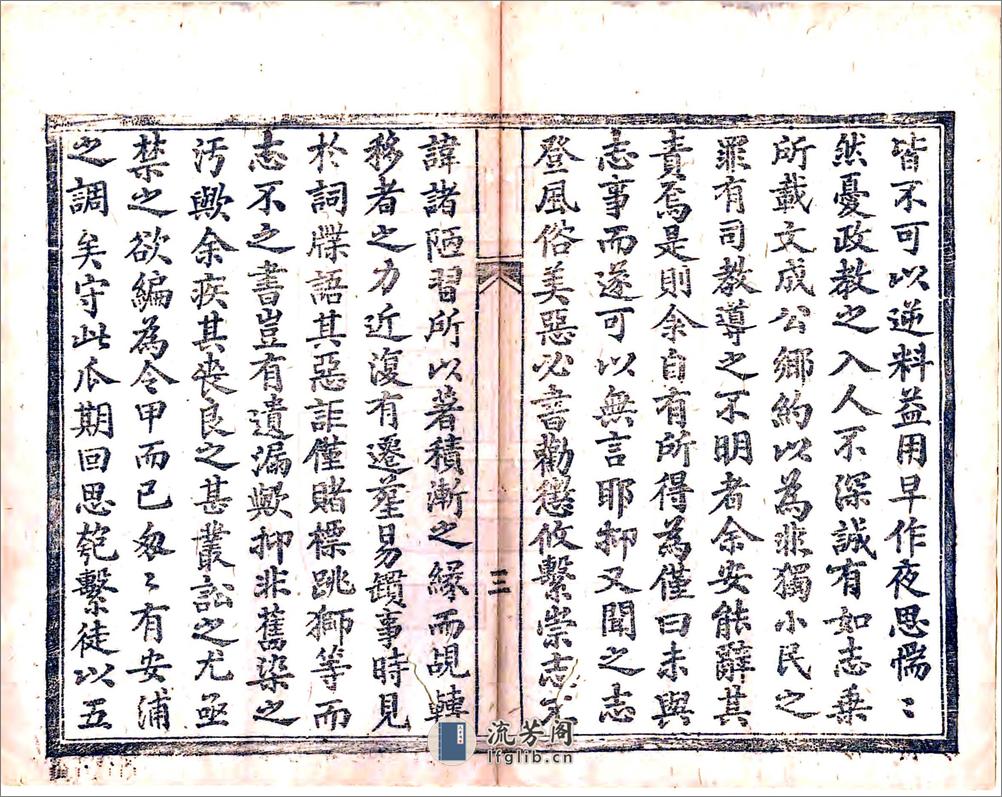 皆不可以逆料益用早作夜思惴〻
然憂政教之入人不深誠有如志乗
所載文成公鄉約以為非獨小民之
罪有司教導之不明者余安能辭其
責焉是則余自有所得為僅曰未與
志事而遂可以無言耶抑又聞之志
登風俗美惡必書勸懲攸繫崇志
三
諱諸陋習所以著積漸之緣而覘轉
移者之力近復有遷塟易鐀事時見
於詞牒語其惡詎僅賭標跳獅等而
志不之書豈有遺漏歟抑非舊染之
汚歟余疾其喪良之甚叢訟之尤亟
禁之欲編為令甲而已匆〻有安浦
之調矣守此瓜期回思匏繫徒以五
流芳阁
lfglib.cn